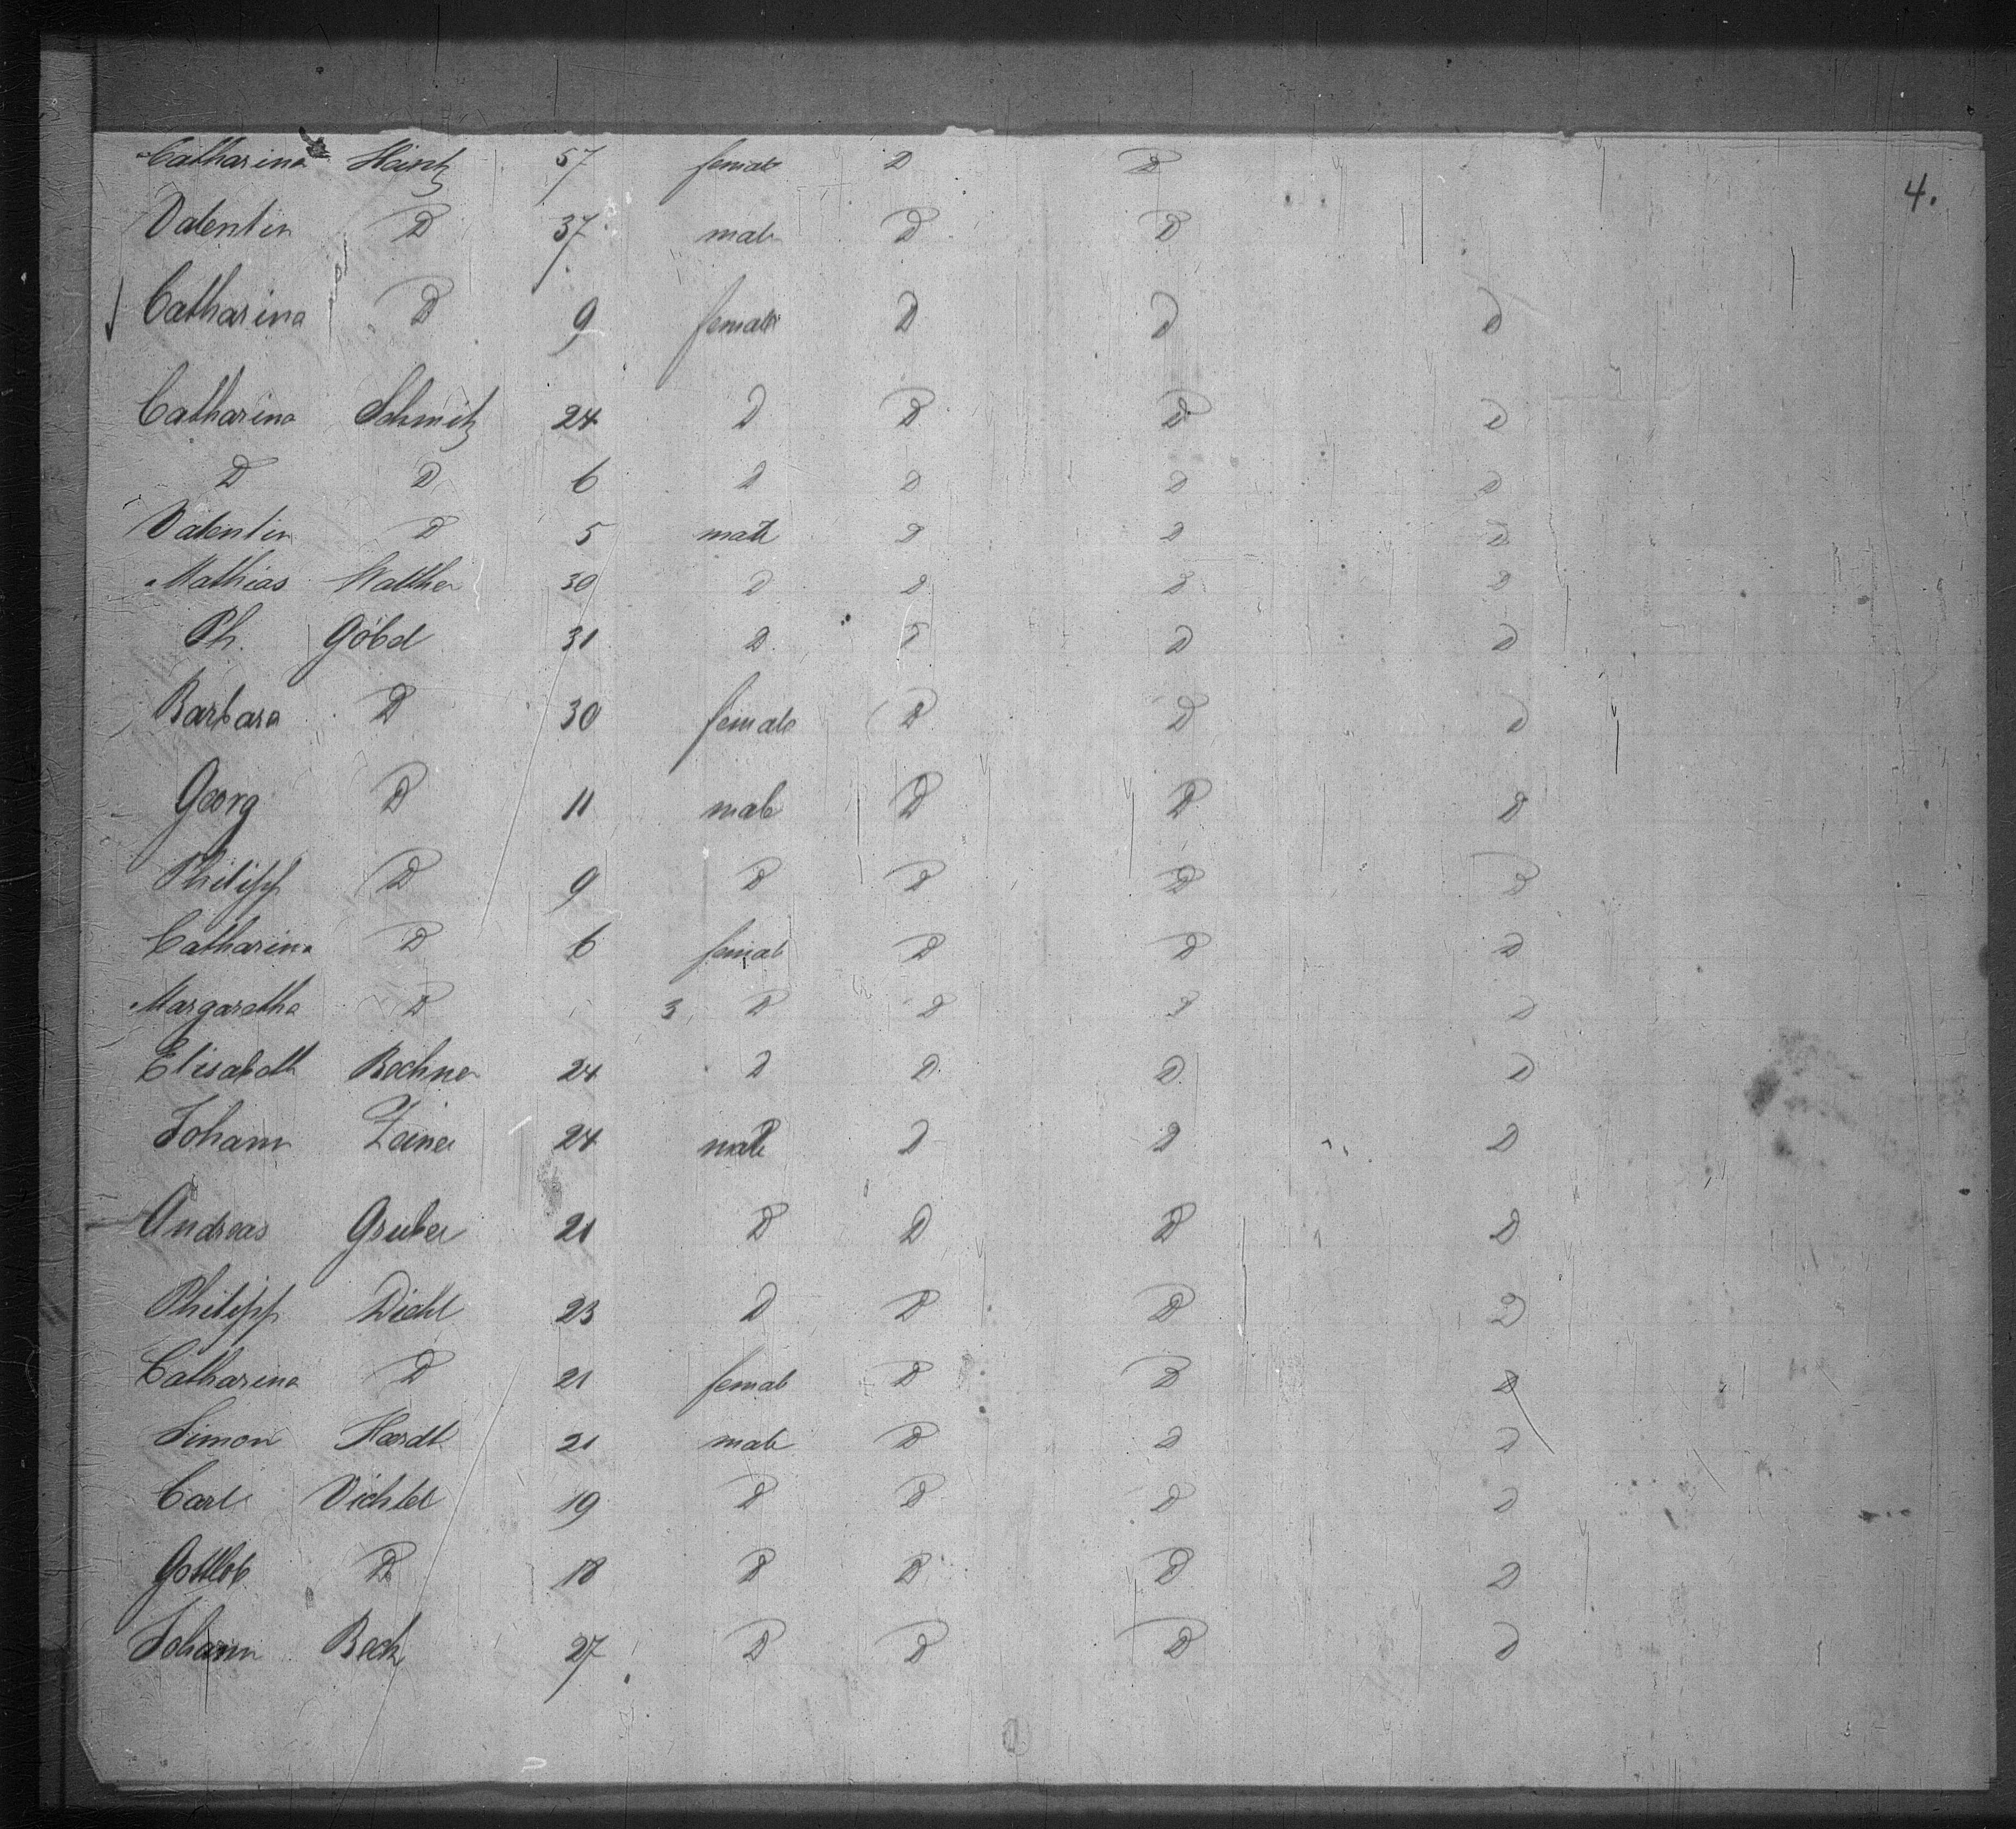 4.
Catharina Heintz 57 female D D
Valentin D 37 male D D
Catharina D 9 female D D D
Catharina Schmitz 24 D D D D
D D 6 D D D D
Valentin D 5 male D D D
Mathias Walther 30 D D D D
Ph. Göbel 31 D D D D
Barbara D 30 female D D D
Georg D 11 male D D D
Philipp D 9 D D D D
Catharina D 6 female D D D
Margaretha D 3 D D D D
Elisabeth 24 D D D D
Johann 24 male D D D
Andreas Gruber 21 D D D D
Philipp Diehl 23 D D D D
Catharina D 21 female D D D
Simon Hardt 21 male D D D
Carl 19 D D D D
Gottlob D 18 D D D D
Johann Beck 27 D D D D